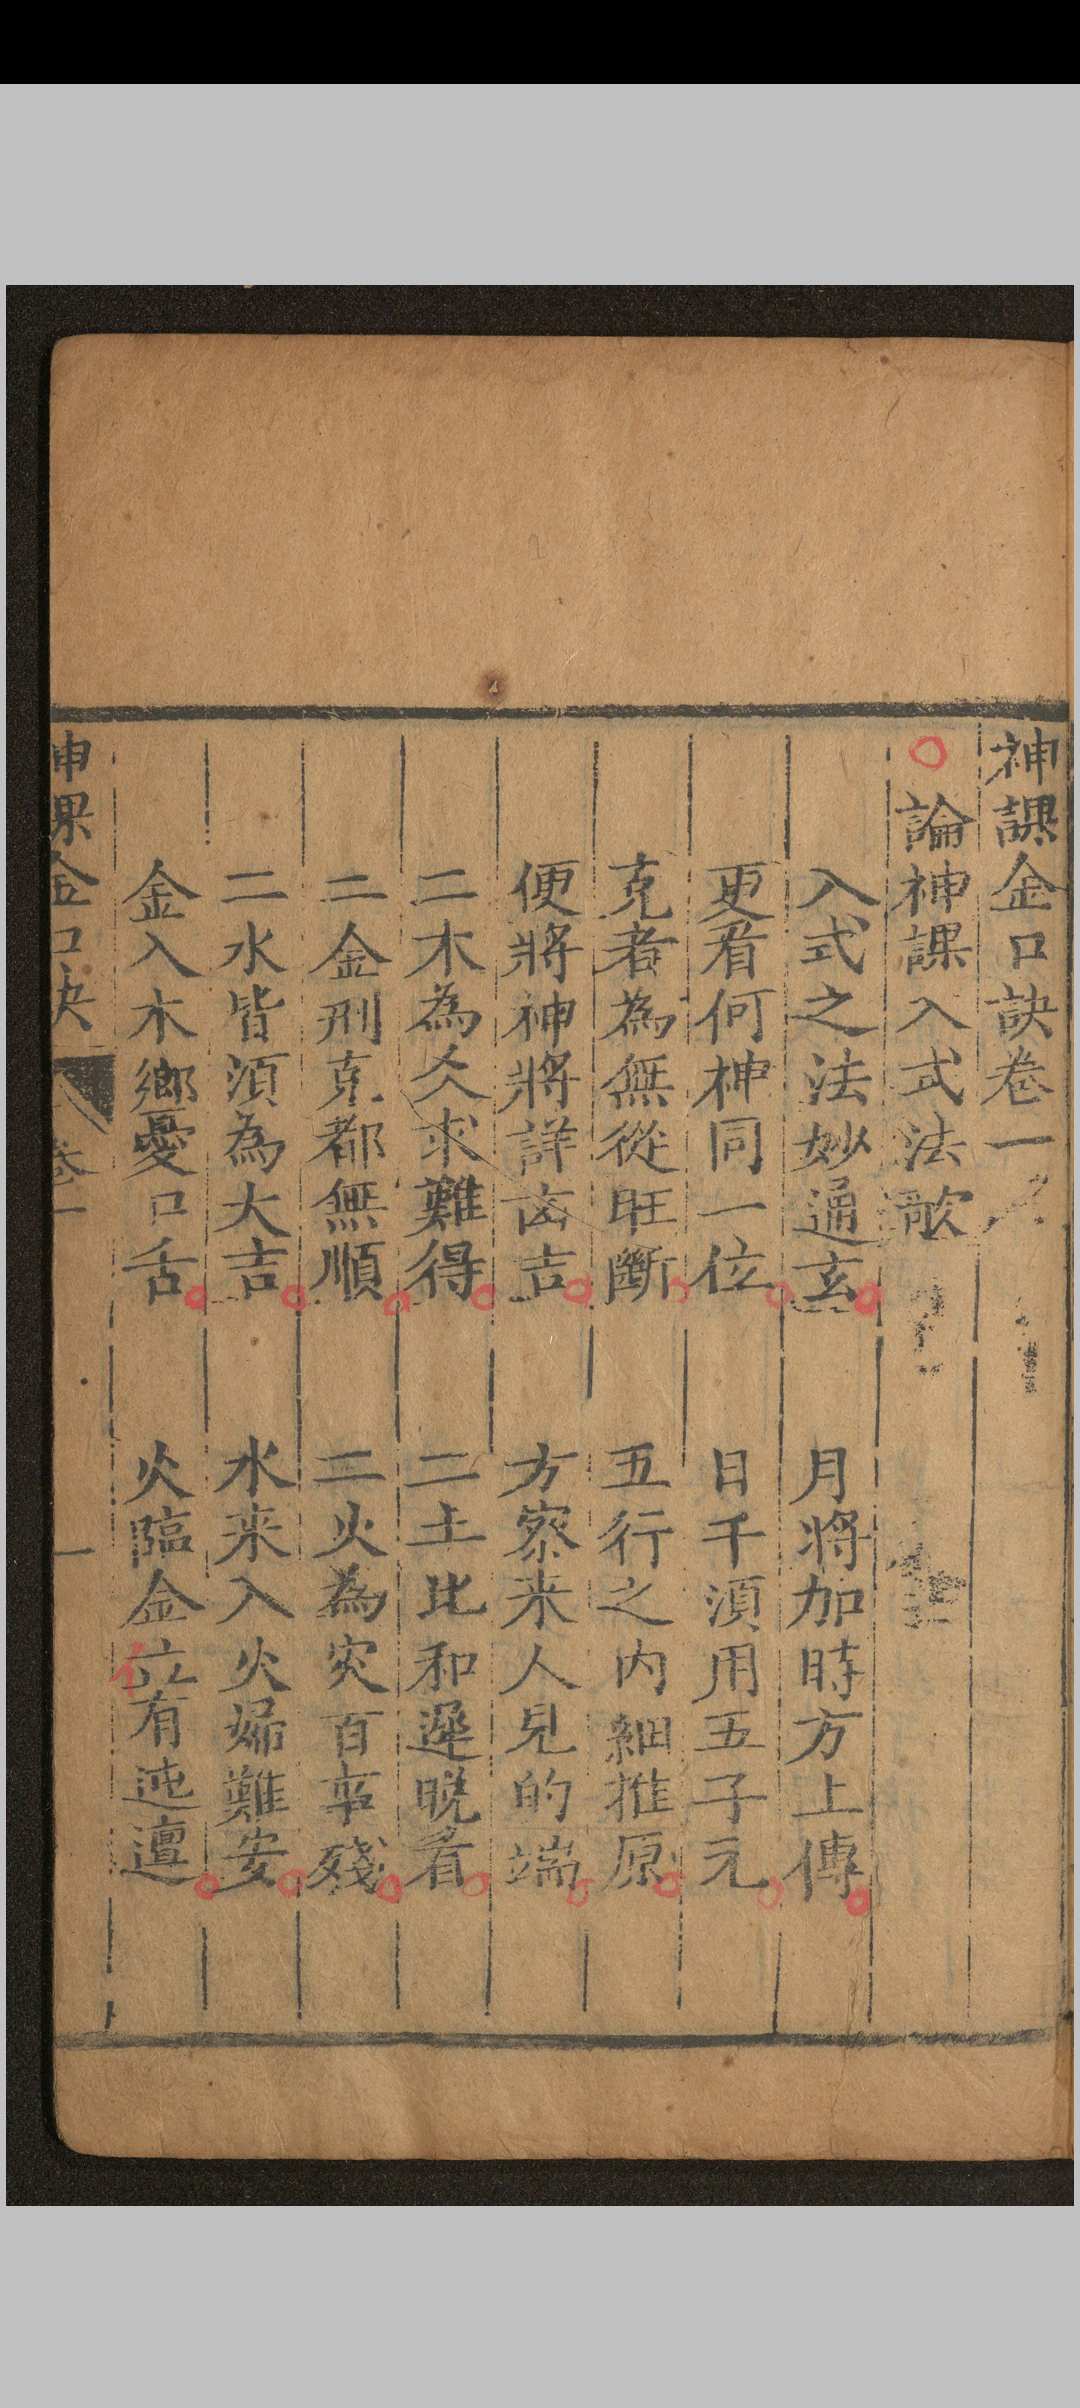 神課金口訣卷一
論神課入式法歌
入式之法妙通玄 月將加時方上傳
更看何神同一位 日干須用五子元
克者為無從旺斷 五行之內細推原
便將神將詳凶吉 方察来人見的端
二木為爻求難得 二土比和遲晚看
二金刑克都無順 二火為灾百事殘
二水皆須為大吉 水来入火婦難安
金入木鄉憂口舌 火臨金位有迍邅
神課金口訣 卷一 一